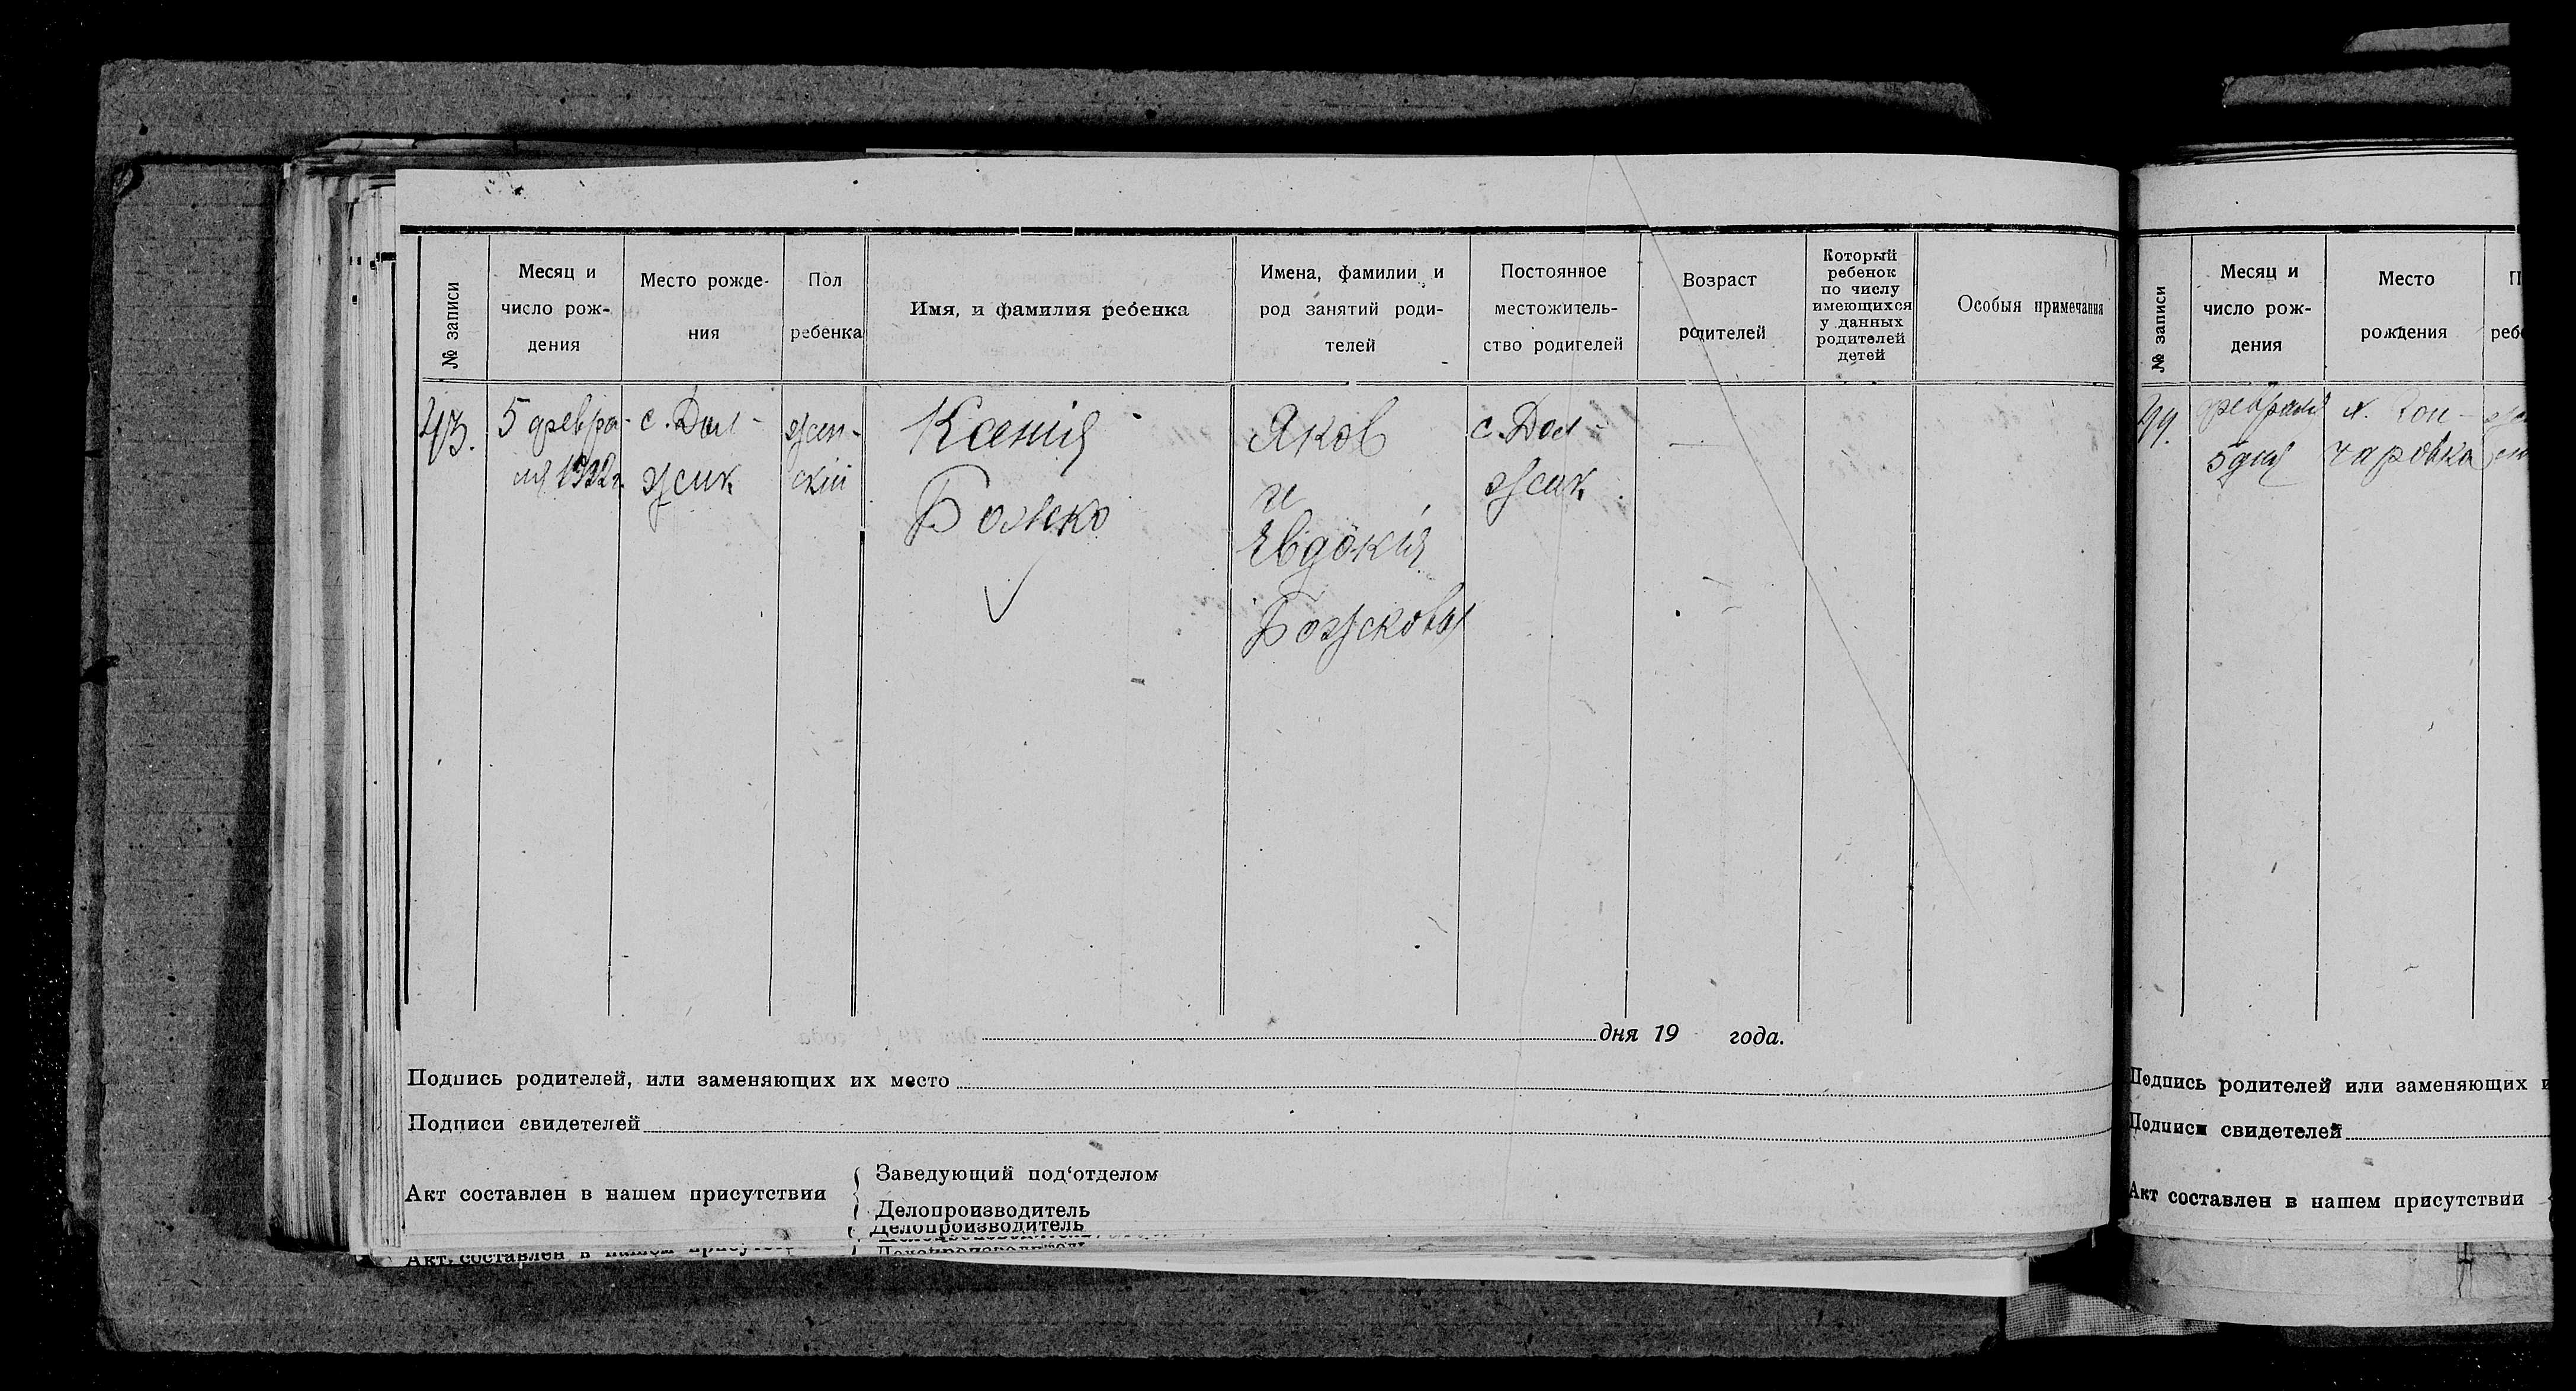 № записи
Месяц и
число рож-
дения
Место рожде-
ния
Пол
ребенка
Имя, и фамилия ребенка
Имена, фамилии и
род занятий роди-
телей
Постоянное
местожитель-
ство родителей
Возраст
родителей
Который
ребенок
по числу
имеющихся
у данных
родителей
детей
Особыя примечания
43.
5 февра-
ля 1922 г.
с. Дол-
жик
жен-
скій
Ксенія
Божко
Яков
и
Евдокія
Божковы
с. Дол-
жик
дня 19 года.
Подпись родителей, или заменяющих их место
Подписи свидетелей
Акт составлен в нашем присутствии
Заведующий под'отделом
Делопроизводитель
Делопроизводитель
Акт составлен в нашем
№ записи
Месяц и
число рож-
дения
Место
рождения
февраля
5 дня
х. Гон-
чаровка
Подпись родителей или заменяющих
Подписи свидетелей
Акт составлен в нашем присутствии